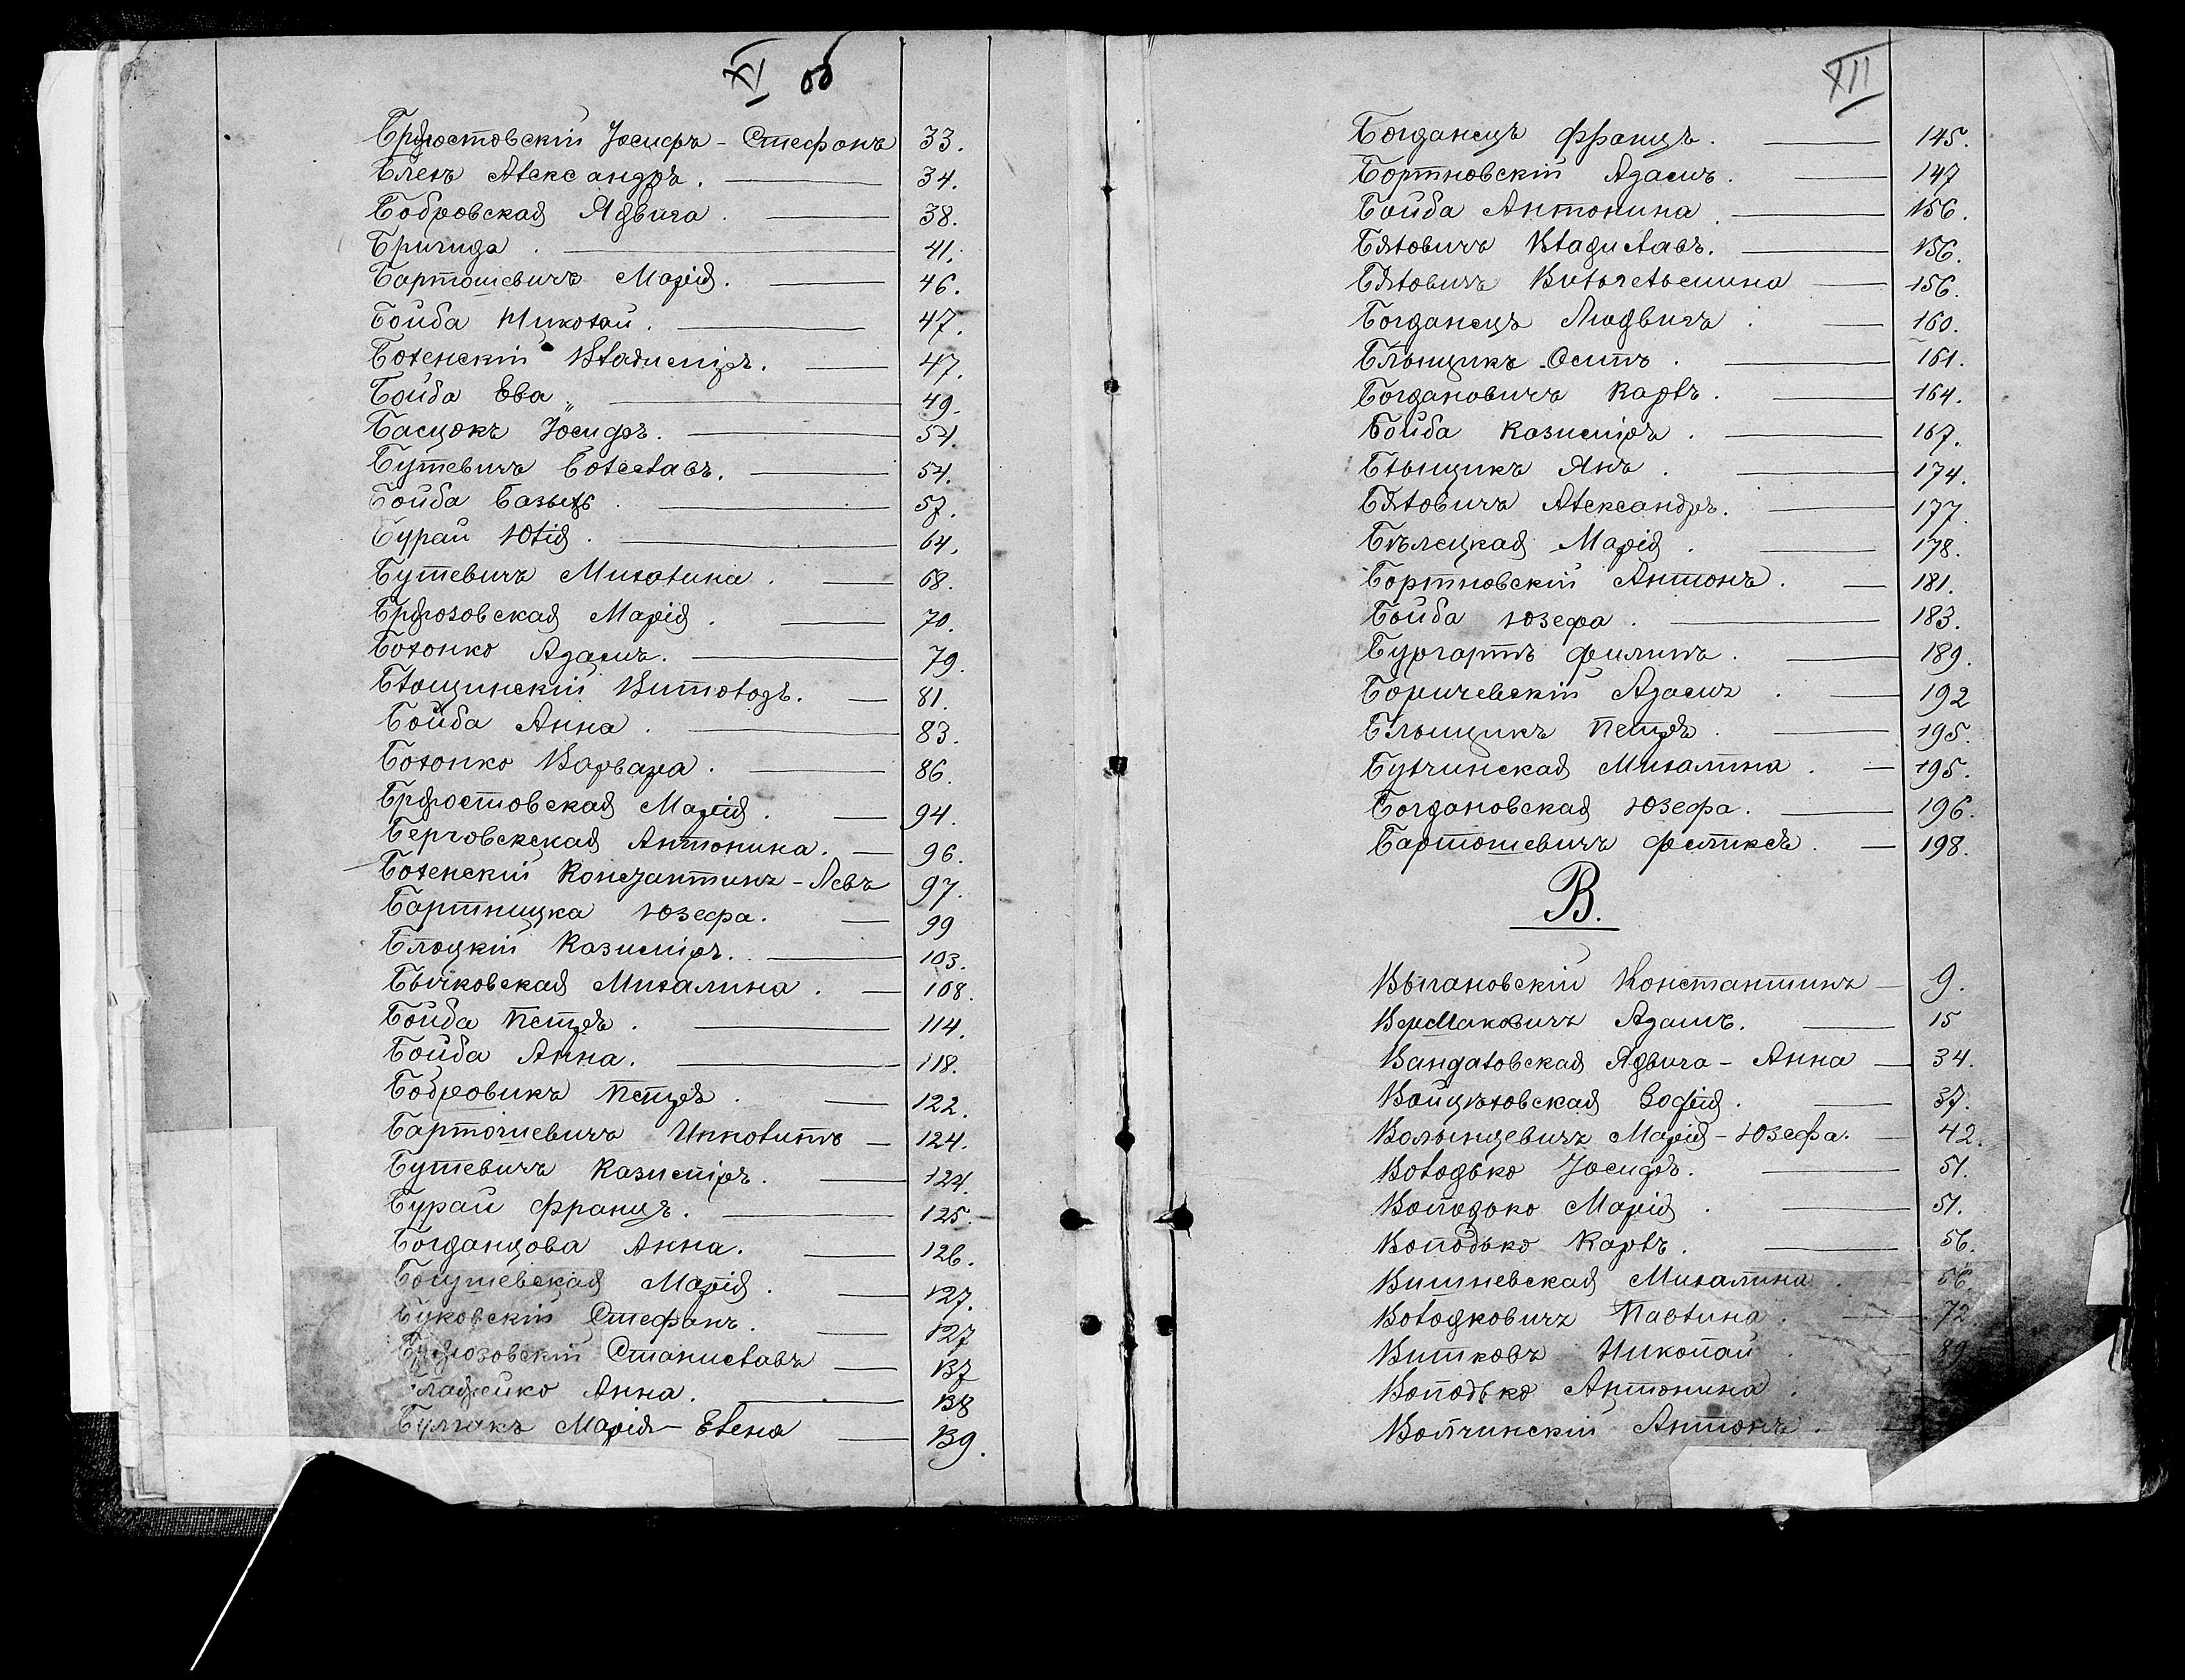 XI об
Бржостовскій Іосифъ - Стефанъ 33.
Блехъ Александръ. 34.
Бобровская Ядвига. 38.
Бригида. 41.
Бартошевичъ Марія. 46.
Бойба Николай. 47.
Боженскій Владиміръ. 47.
Бойба Ева 49.
Басцюкъ Іосифъ. 54.
Бутевичъ Болеславъ. 54.
Бойба Базыль. 57.
Бурай Юлія. 64.
Бутевичъ Михалина. 68.
Бржозовская Марія. 70.
Бохонко Адамъ. 79.
Блощинскій Витольдъ. 81.
Бойба Анна. 83.
Бохонко Варвара. 86.
Бржостовская Марія. 94.
Антонина. 96.
Боженскій Левъ 97.
Бартницка Юзефа. 99
Блоцкій Казиміръ. 103.
Бычковская Михалина. 108.
Бойба Петръ. 114.
Бойба Анна. 118.
Бобровикъ Петръ. 122.
Бартошевичъ 124.
Бутевичъ Казиміръ. 124.
Бурай Францъ. 125.
Богданцова Анна. 126.
Марія. 127.
Буковскій Стефанъ. 127
Бржозовскій Станиславъ 137
Анна. 138
Булгакъ Марія - Елена 139.
XII
Богданецъ Францъ. 145.
Бортновскій Адамъ. 147
Бойба Антонина. 156.
Бяловичъ Владиславъ. 156.
Бяловичъ Вильгельмина 156.
Богданецъ Людвигъ. 160.
Блыщикъ Осипъ. 161.
Богдановичъ Карлъ. 164.
Бойба Казиміръ. 167.
Блыщикъ Янъ. 174.
Бяловичъ Александръ. 177.
Бѣлецкая Марія. 178.
Бортновскій Антонъ. 181.
Бойба Юзефа. 183.
Бургартъ Филипъ. 189.
Боричевскій Адамъ. 192
Блыщикъ Петръ. 195.
Бутчинская Михалина. 195.
Богдановская Юзефа. 196.
Бартошевичъ Феликсъ. 198.
В.
Выгановскій Константинъ 9.
Вермаковичъ Адамъ. 15
Вандаловская Ядвига - Анна 34.
Войцѣховская Зофія. 37.
Волынцевичъ Марія - Юзефа. 42.
Володько Іосифъ. 51.
Володько Марія. 51.
Володько Карлъ. 56.
Вишневская Михалина. 56.
Володковичъ Павлина. 72.
Витковъ Николай. 89
Володько Антонина.
Волчинскій Антонъ.